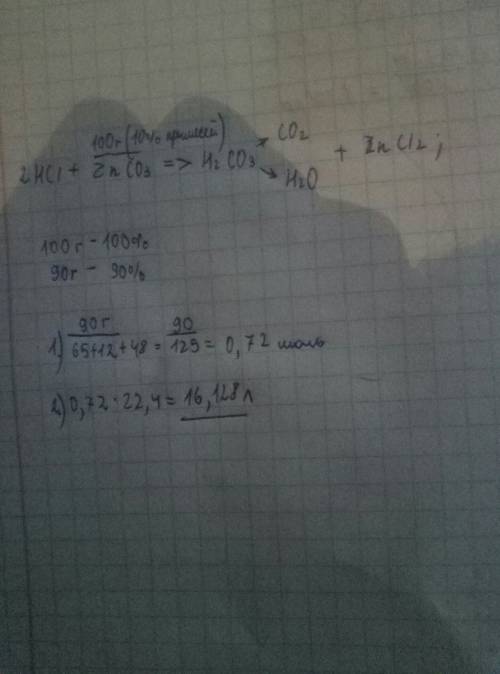 100г (10% примесей)
2HCl + ZnCO3 => H2CO3 ↗ CO2 ↘ H2O + ZnCl2;
100г - 100%
90г - 90%
1) 90г / 65+12+48 = 90 / 125 = 0,72 моль
2) 0,72 · 22,4 = 16,128 л